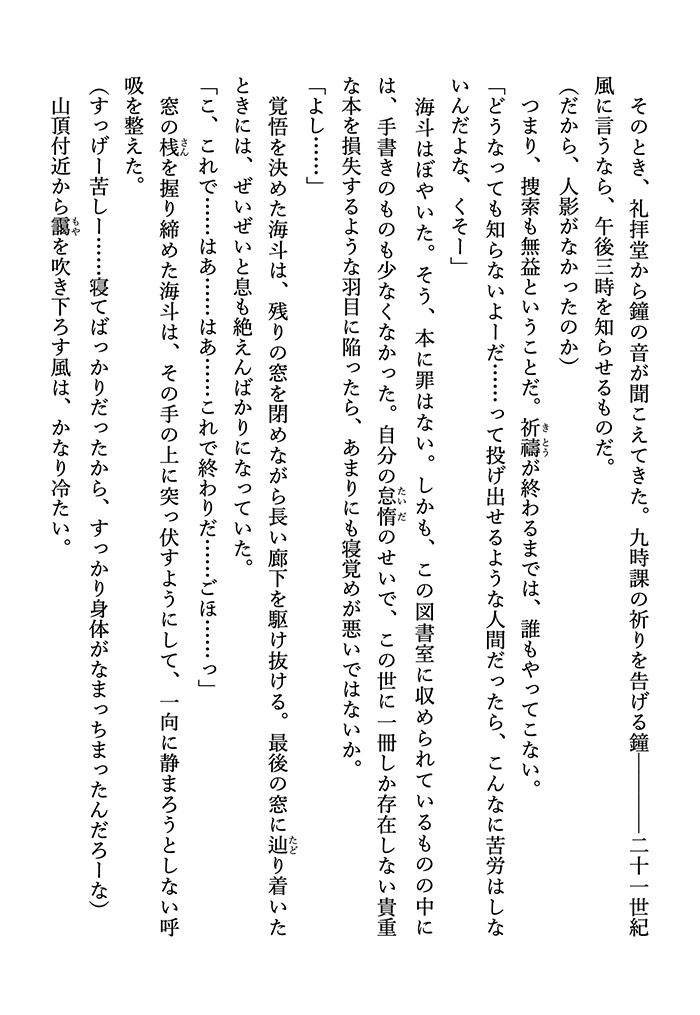 そのとき、礼拝堂から鐘の音が聞こえてきた。九時課の祈りを告げる鐘――――二十一世紀
風に言うなら、午後三時を知らせるものだ。
（だから、人影がなかったのか）
　つまり、捜索も無益ということだ。祈禱きとうが終わるまでは、誰もやってこない。
「どうなっても知らないよーだ……って投げ出せるような人間だったら、こんなに苦労はしな
いんだよな、くそー」
　海斗はぼやいた。そう、本に罪はない。しかも、この図書室に収められているものの中に
は、手書きのものも少なくなかった。自分の怠惰たいだのせいで、この世に一冊しか存在しない貴重
な本を損失するような羽目に陥ったら、あまりにも寝覚めが悪いではないか。
「よし……」
　覚悟を決めた海斗は、残りの窓を閉めながら長い廊下を駆け抜ける。最後の窓に辿たどり着いた
ときには、ぜいぜいと息も絶えんばかりになっていた。
「こ、これで……はあ……はあ……これで終わりだ……ごほ……っ」
　窓の桟さんを握り締めた海斗は、その手の上に突っ伏すようにして、一向に静まろうとしない呼
吸を整えた。
（すっげー苦しー……寝てばっかりだったから、すっかり身体がなまっちまったんだろーな）
　山頂付近から靄もやを吹き下ろす風は、かなり冷たい。